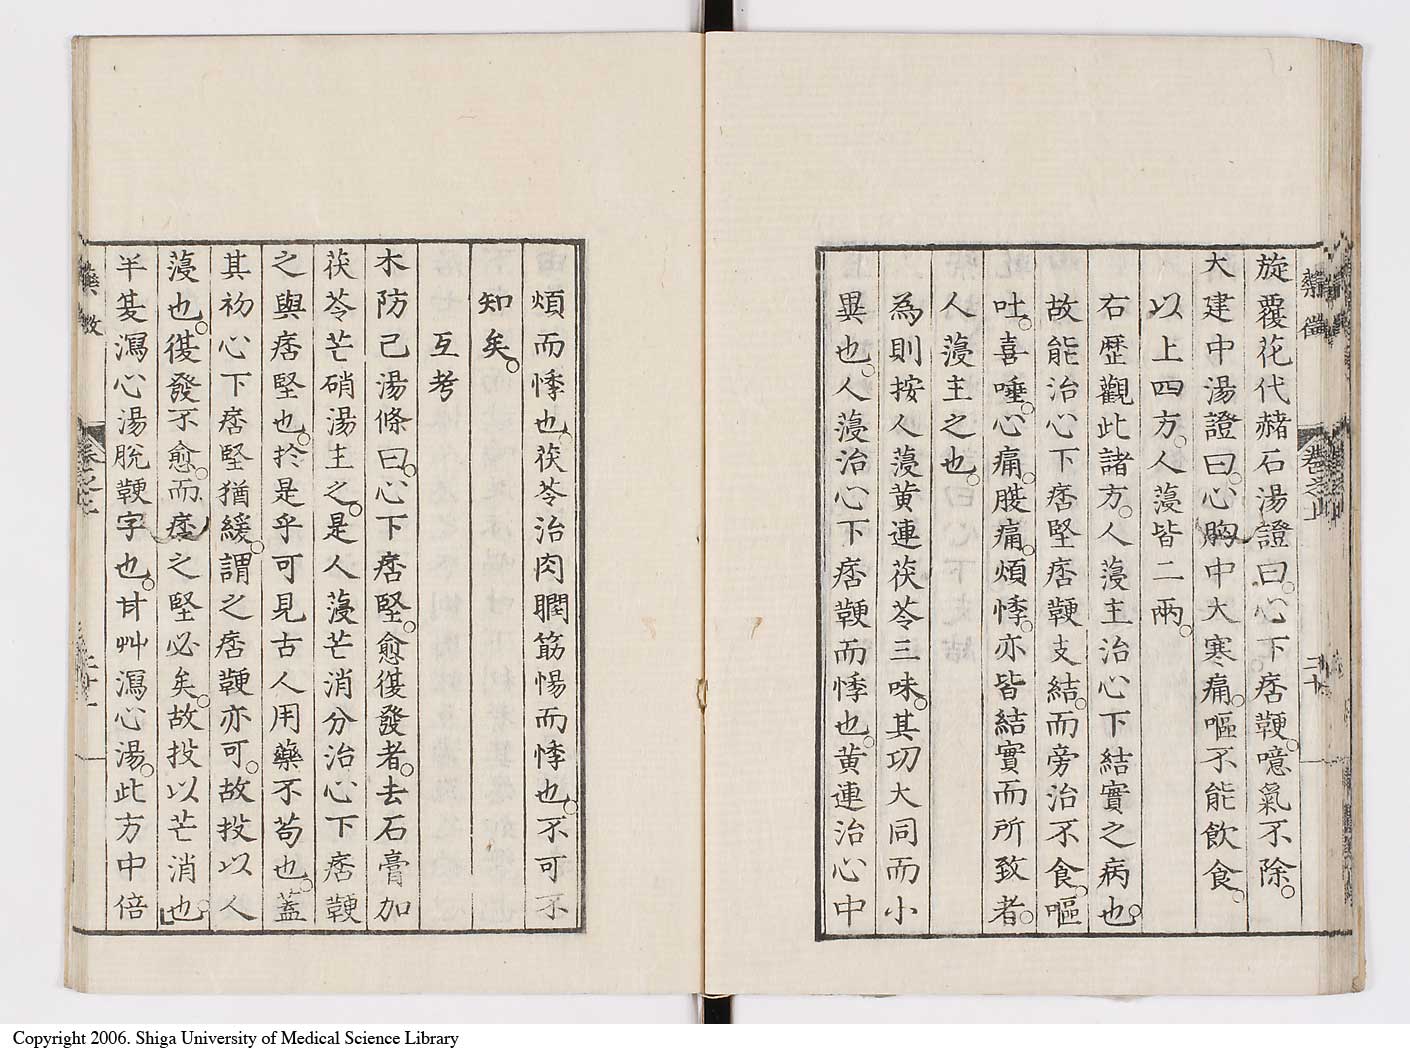 旋覆花代赭石湯證曰心下痞鞕噫氣不除
大建中湯證曰心胸中大寒痛嘔不能飲食
以上四方人薓皆二兩
右歷觀此諸方人薓主治心下結實之病也
故能治心下痞堅痞鞕支結而旁治不食嘔
吐喜唾心痛腹痛煩悸亦皆結實而所致者
人薓主之也
為則按人薓黄連茯苓三味其功大同而小
異也人薓治心下痞鞕而悸也黄連治心中
煩而悸也茯苓治肉瞤筋惕而悸也不可不
知矣
互考
木防己湯條曰心下痞堅愈復發者去石膏加
茯苓芒硝湯主之是人薓芒消分治心下痞鞕
之與痞堅也於是乎可見古人用藥不苟也蓋
其初心下痞堅猶緩謂之痞鞕亦可故投以人
薓也復發不愈而痞之堅必矣故投以芒消也
半夏瀉心湯脫鞕字也甘艸瀉心湯此方中倍
藥徴
卷之上
二十
卷之上
Copyright 2006. Shiga University of Medical Science Library